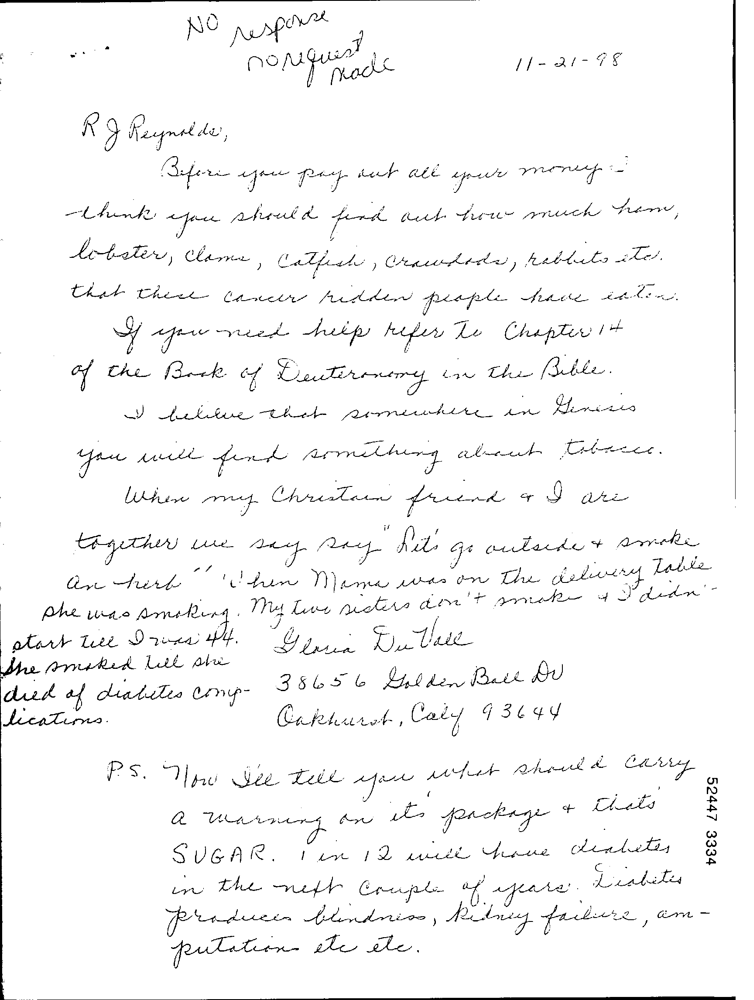 No response
no request
made
11-21-98
R J Reynolds,
Before you pay out all your money I
think you should find out how much ham,
lobster, clams, catfish, crawdads, rabbits etc.
that these cancer ridden people have eaten.
If you need help refer to Chapter 14
of the Book of Deuteronomy in the Bible.
I believe that somewhere in Genesis
you will find something about tobacco.
When my Christain friend & I are
together we say say "Let's go outside & smoke
an herb" When Mama was on the delivery table
she was smoking. My two sisters don't smoke & I didn't
start till I was 44.
She smoked till she
died of diabetes comp-
lications.
Gloria DuVall
38656 Golden Ball Dr
Oakhurst, Calif 93644
P.S. Now I'll tell you what should carry
a warning on it's package & that's
SUGAR. 1 in 12 will have diabetes
in the next couple of years. Diabetes
produces blindness, kidney failure, am-
putations etc etc.
52447 3334